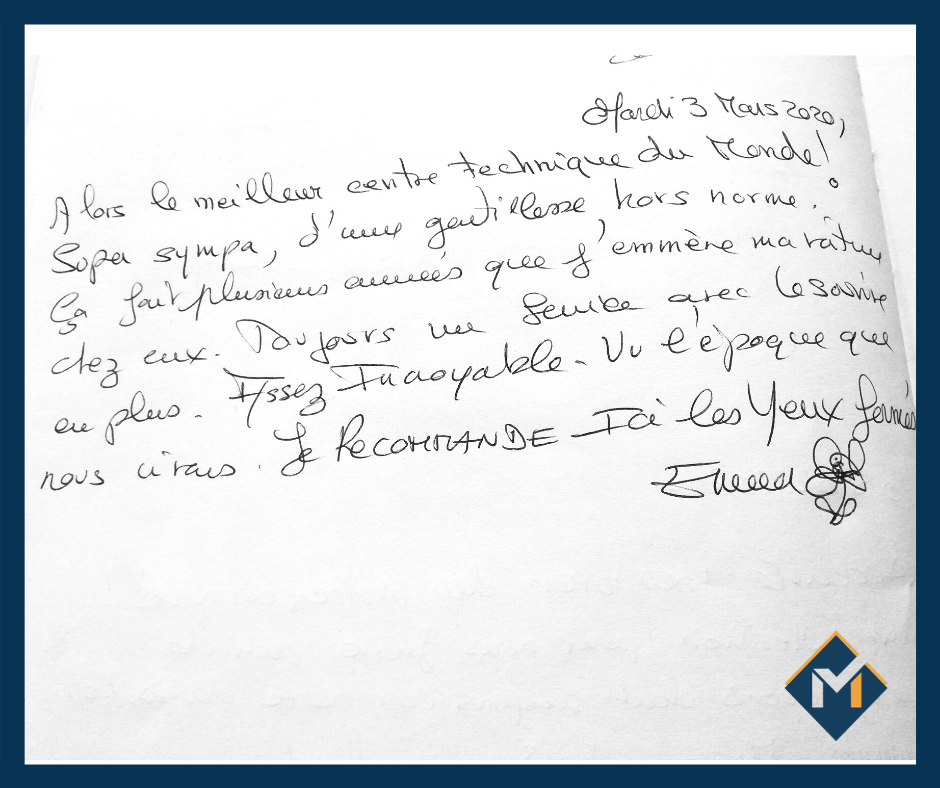 Mardi 3 Mars 2020,
Alors le meilleur centre technique du Monde!
Super sympa, d'une gentillesse hors norme.
Ça fait plusieurs années que j'emmène ma voiture
chez eux. Toujours un service avec le sourire
en plus. Assez Incroyable. Vu l'époque que
nous vivons. Je RECOMMANDE Ici les Yeux fermés
M